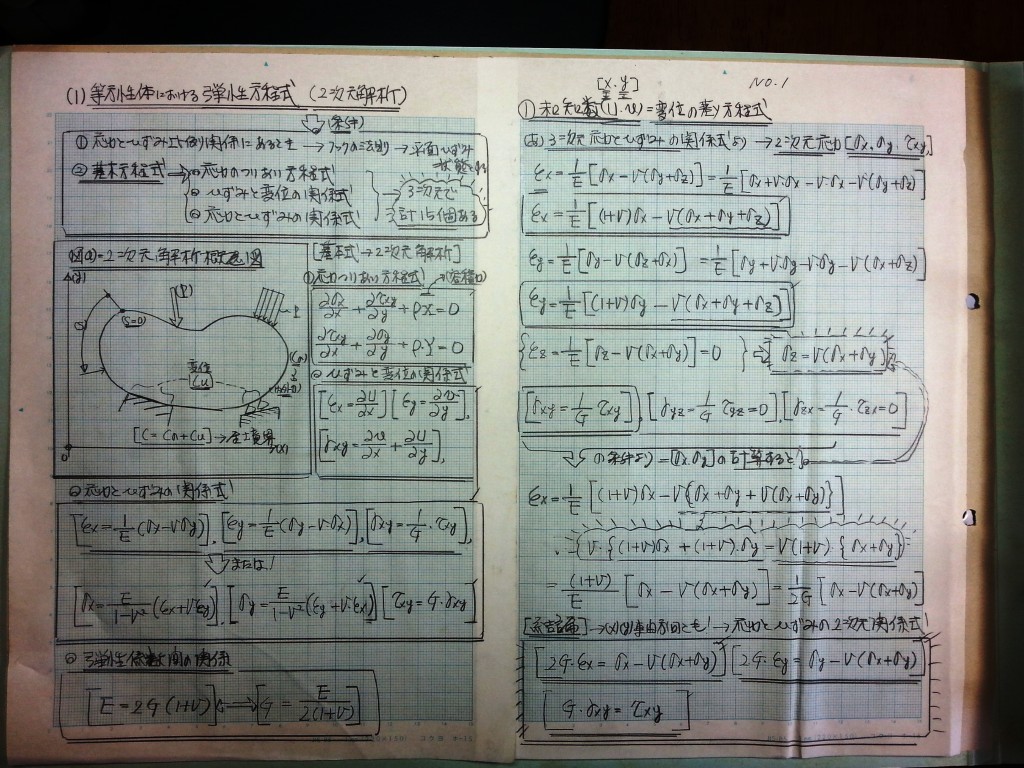 (1) 等方性体における弾性方程式 (2次元解析)
(条件)
① 応力とひずみ比例関係にあるとき → フックの法則 → 平面ひずみ
状態とする
② 基本方程式 → ⊙ 応力のつりあい方程式
⊙ ひずみと変位の関係式
⊙ 応力とひずみの関係式
3次元で
計15個ある
図(1)=2次元解析概念図
S
(S=0)
(P)
P
変位
Cu
[C=Cσ+Cu]→
0
[基本式→2次元解析]
⊙ 応力つりあい方程式
∂σx/∂x + ∂τxy/∂y + ρX = 0
∂τxy/∂x + ∂σy/∂y + ρ·Y = 0
⊙ ひずみと変位の関係式
[εx = ∂u/∂x] [εy = ∂v/∂y],
[γxy = ∂v/∂x + ∂u/∂y],
⊙ 応力とひずみの関係式
[εx = 1/E (σx − ν·σy)], [εy = 1/E (σy − ν·σx)], [γxy = 1/G · τxy],
または!
[σx = E/1−ν² (εx + ν·εy)], [σy = E/1−ν² (εy + ν·εx)], [τxy = G·γxy]
⊙ 弾性係数間の関係
[E = 2G(1+ν)] ⟷ [G = E/2(1+ν)]
[x.y] NO.1
① 未知数(u.v)=変位の差分方程式
(あ) 3次元応力とひずみの関係式より → 2次元応力[σx, σy, τxy]
εx = 1/E [σx − ν(σy+σz)] = 1/E [σx + ν·σx − ν·σx − ν(σy+σz)]
εx = 1/E [(1+ν)σx − ν(σx+σy+σz)]
εy = 1/E [σy − ν(σz+σx)] = 1/E [σy + ν·σy − ν·σy − ν(σx+σz)]
εy = 1/E [(1+ν)σy − ν(σx+σy+σz)]
{εz = 1/E [σz − ν(σx+σy)] = 0 } ⇒ [σz = ν(σx+σy)]
[γxy = 1/G τxy], [γyz = 1/G τyz = 0], [γzx = 1/G · τzx = 0]
の条件より=[σx, σy]の計算すると!
εx = 1/E [(1+ν)σx − ν{σx+σy+ν(σx+σy)}]
ν·{(1+ν)σx + (1+ν)·σy = ν(1+ν)·{σx+σy}
= (1+ν)/E [σx − ν(σx+σy)] = 1/2G [σx − ν(σx+σy)]
[結論] → (x)(y)軸方向とも! → 応力とひずみの2次元関係式!
[2G·εx = σx − ν(σx+σy)] [2G·εy = σy − ν(σx+σy)]
[G·γxy = τxy]